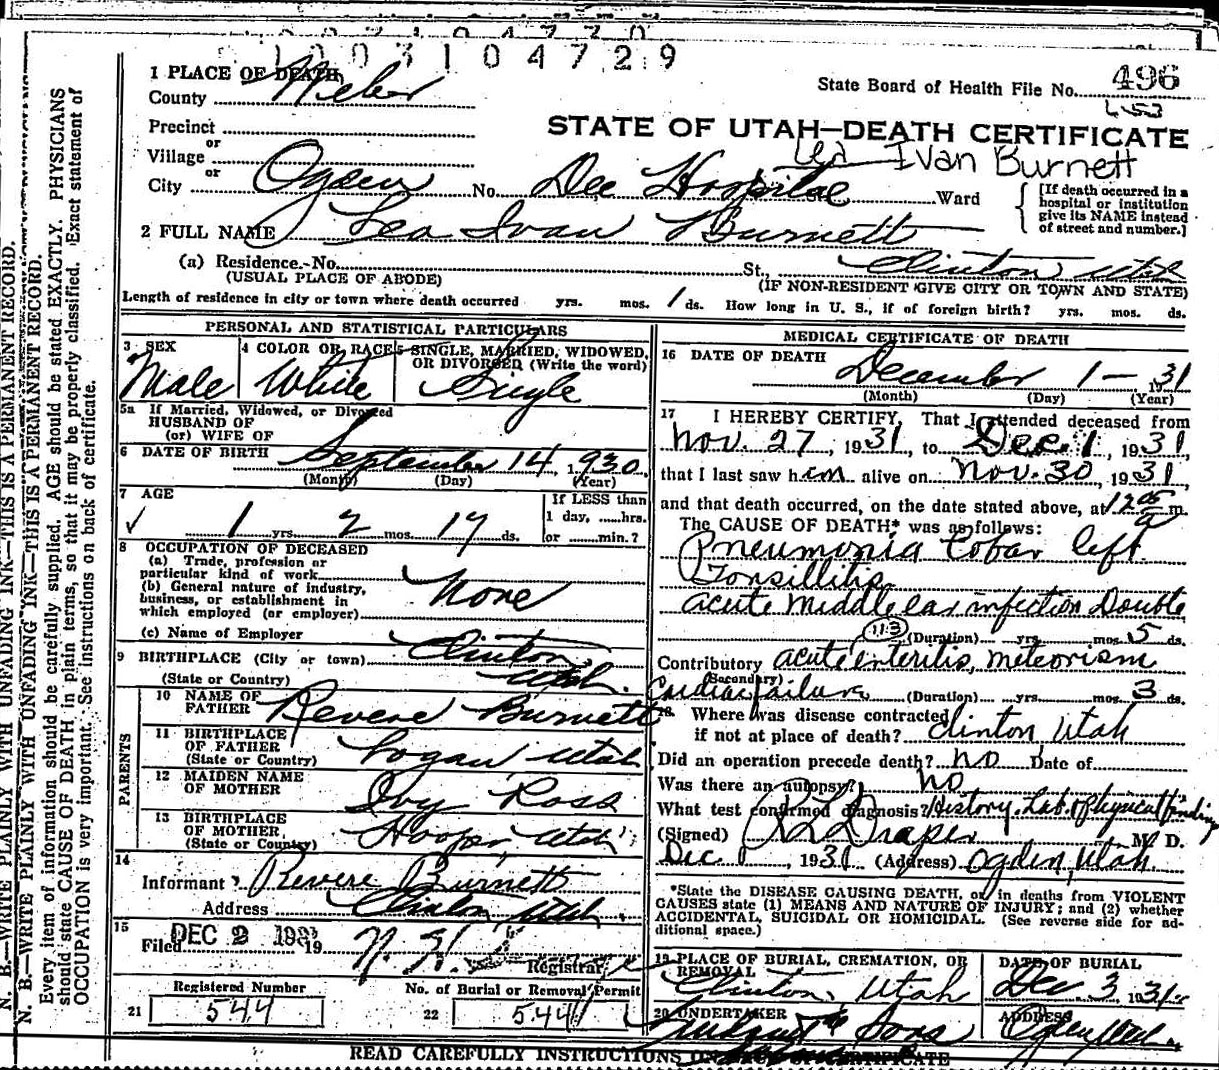 1 0 0 3 1 0 4 7 2 9
1 PLACE OF DEATH
County Weber
State Board of Health File No. 496
Precinct
or
Village
or
STATE OF UTAH—DEATH CERTIFICATE
Ivan Burnett
City Ogden No. Dee Hospital St. Ward
[If death occurred in a hospital or institution give its NAME instead of street and number.]
2 FULL NAME Lea Ivan Burnett
(a) Residence.-No. St., Clinton Utah
(USUAL PLACE OF ABODE) (IF NON-RESIDENT GIVE CITY OR TOWN AND STATE)
Length of residence in city or town where death occurred yrs. mos. 1 ds. How long in U. S., if of foreign birth? yrs. mos. ds.
PERSONAL AND STATISTICAL PARTICULARS
3 SEX
Male
4 COLOR OR RACE
White
5 SINGLE, MARRIED, WIDOWED, OR DIVORCED (Write the word)
Single
5a If Married, Widowed, or Divorced
HUSBAND OF
(or) WIFE OF
6 DATE OF BIRTH September 14, 1930
(Month) (Day) (Year)
7 AGE
1 yrs. 2 mos. 17 ds.
If LESS than
1 day, ......hrs.
or ......min.?
8 OCCUPATION OF DECEASED
(a) Trade, profession or
particular kind of work
(b) General nature of industry,
business, or establishment in
which employed (or employer)
None
(c) Name of Employer
9 BIRTHPLACE (City or town) Clinton
(State or Country) Utah.
PARENTS
10 NAME OF
FATHER Revere Burnett
11 BIRTHPLACE
OF FATHER
(State or Country) Logan, Utah
12 MAIDEN NAME
OF MOTHER Ivy Ross
13 BIRTHPLACE
OF MOTHER
(State or Country) Hooper Utah
14
Informant Revere Burnett
Address Clinton Utah
15
Filed DEC 2 1931 19
Registrar
Registered Number
21 544
No. of Burial or Removal Permit
22 544
MEDICAL CERTIFICATE OF DEATH
16 DATE OF DEATH
December 1 — 1931
(Month) (Day) (Year)
17 I HEREBY CERTIFY, That I attended deceased from
Nov. 27, 1931 to Dec. 1, 1931
that I last saw him alive on Nov. 30, 1931
and that death occurred, on the date stated above, at 12 05 a m.
The CAUSE OF DEATH* was as follows:
Pneumonia Lobar left
Tonsillitis
Acute Middle ear infection Double
(Duration) yrs. mos. 5 ds.
Contributory acute enteritis, meteorism
(Secondary)
Cardiac failure (Duration) yrs. mos. 3 ds.
18 Where was disease contracted
if not at place of death? Clinton Utah
Did an operation precede death? no Date of
Was there an autopsy? no
What test confirmed diagnosis? History, Lab. & physical finding
(Signed) Draper M. D.
Dec 1, 1931 (Address) Ogden, Utah.
*State the DISEASE CAUSING DEATH, or in deaths from VIOLENT
CAUSES state (1) MEANS AND NATURE OF INJURY; and (2) whether
ACCIDENTAL, SUICIDAL OR HOMICIDAL. (See reverse side for ad-
ditional space.)
19 PLACE OF BURIAL, CREMATION, OR
REMOVAL
Clinton, Utah
DATE OF BURIAL
Dec 3 1931
20 UNDERTAKER
Sons
ADDRESS
Ogden Utah
READ CAREFULLY INSTRUCTIONS ON CERTIFICATE
N. B.—WRITE PLAINLY WITH UNFADING INK—THIS IS A PERMANENT RECORD.
N. B.—WRITE PLAINLY WITH UNFADING INK—THIS IS A PERMANENT RECORD.
Every item of information should be carefully supplied. AGE should be stated EXACTLY. PHYSICIANS
should state CAUSE OF DEATH in plain terms, so that it may be properly classified. Exact statement of
OCCUPATION is very important. See instructions on back of certificate.